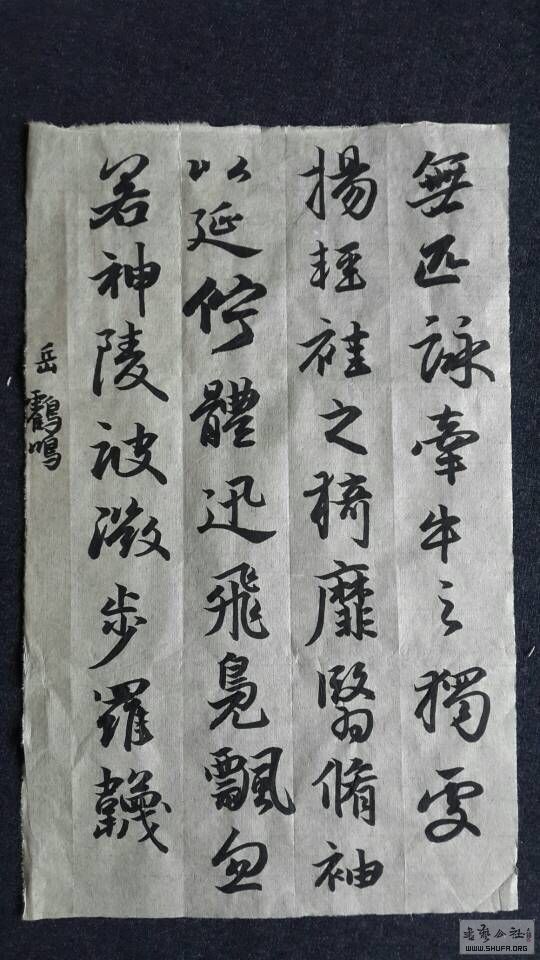 無匹詠牽牛之獨處
揚輕袿之猗靡翳脩袖
以延佇體迅飛鳧飄忽
若神陵波微步羅韈
岳鶴鳴
书艺公社
WWW.SHUFA.ORG